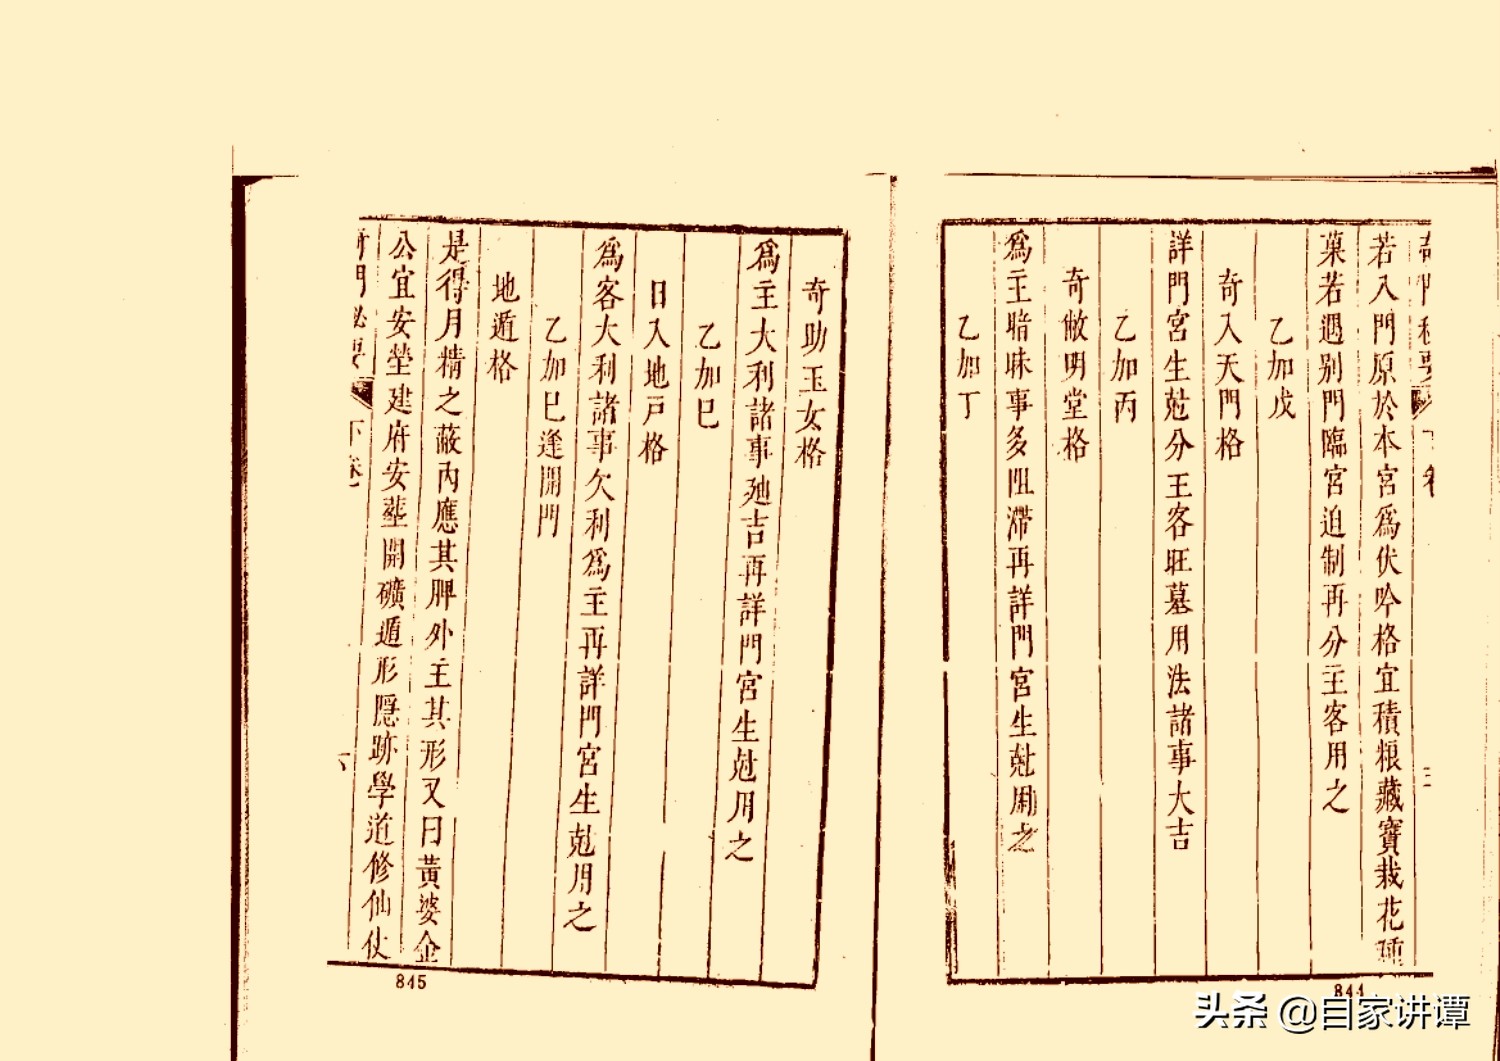 奇門秘要 下卷
若入門原於本宮爲伏吟格宜積粮藏寶栽花種
菓若遇別門臨宮迫制再分主客用之
乙加戊
奇入天門格
詳門宮生尅分王客旺墓用法諸事大吉
乙加丙
奇敝明堂格
爲主暗昧事多阻滯再詳門宮生尅用之
乙加丁
844
奇助玉女格
爲主大利諸事廸吉再詳門宮生尅用之
乙加巳
日入地戸格
爲客大利諸事欠利爲主再詳門宮生尅用之
乙加巳逢開門
地遁格
是得月精之蔽內應其脾外主其形又曰黃婆企
公宜安塋建府安塟開礦遁形隱跡學道修仙仗
奇門秘要 下卷 六
845
头条 @自家讲谭